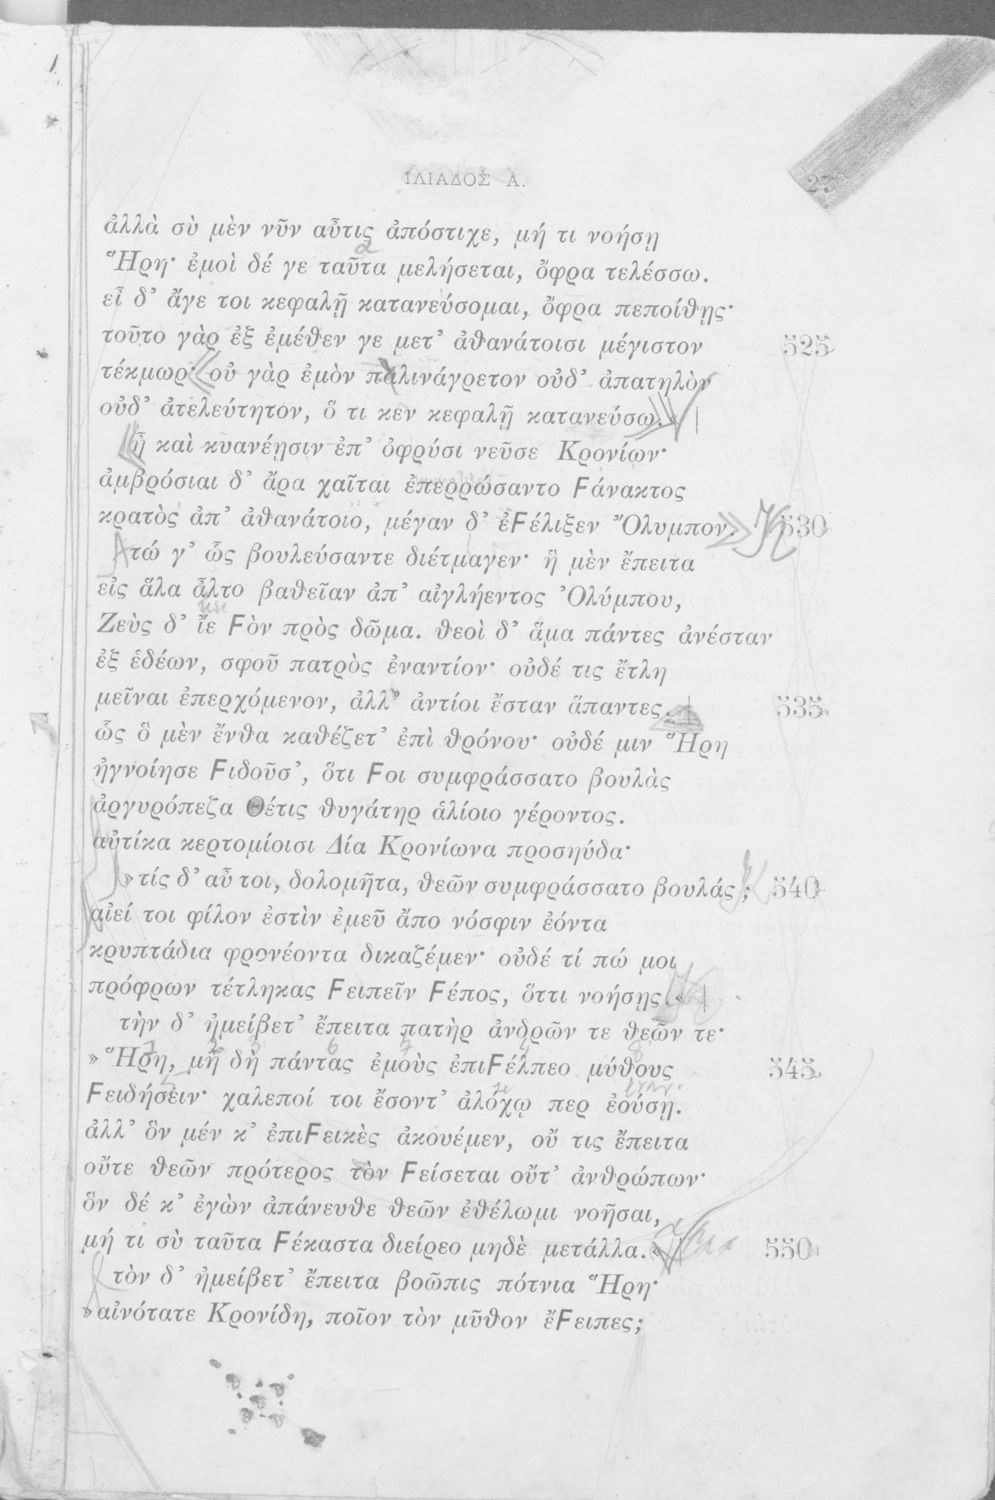 ΙΛΙΑΔΟΣ Α. 27
ἀλλὰ σὺ μὲν νῦν αὖτις ἀπόστιχε, μή τι νοήσῃ
Ἥρη· ἐμοὶ δέ γε ταῦτα μελήσεται, ὄφρα τελέσσω.
εἶ δ᾽ ἄγε τοι κεφαλῇ κατανεύσομαι, ὄφρα πεποίθῃς·
τοῦτο γὰρ ἐξ ἐμέθεν γε μετ᾽ ἀθανάτοισι μέγιστον 525
τέκμωρ· οὐ γὰρ ἐμὸν παλινάγρετον οὐδ᾽ ἀπατηλὸν
οὐδ᾽ ἀτελεύτητον, ὅ τι κεν κεφαλῇ κατανεύσω.«
ἦ καὶ κυανέῃσιν ἐπ᾽ ὀφρύσι νεῦσε Κρονίων·
ἀμβρόσιαι δ᾽ ἄρα χαῖται ἐπερρώσαντο Ϝάνακτος
κρατὸς ἀπ᾽ ἀθανάτοιο, μέγαν δ᾽ ἐϜέλιξεν Ὄλυμπον. 530
τώ γ᾽ ὣς βουλεύσαντε διέτμαγεν· ἣ μὲν ἔπειτα
εἰς ἅλα ἆλτο βαθεῖαν ἀπ᾽ αἰγλήεντος Ὀλύμπου,
Ζεὺς δ᾽ ἴε Ϝὸν πρὸς δῶμα. θεοὶ δ᾽ ἅμα πάντες ἀνέσταν
ἐξ ἑδέων, σφοῦ πατρὸς ἐναντίον· οὐδέ τις ἔτλη
μεῖναι ἐπερχόμενον, ἀλλ᾽ ἀντίοι ἔσταν ἅπαντες. 535
ὣς ὃ μὲν ἔνθα καθέζετ᾽ ἐπὶ θρόνου· οὐδέ μιν Ἥρη
ἠγνοίησε Ϝιδοῦσ᾽, ὅτι Ϝοι συμφράσσατο βουλὰς
ἀργυρόπεζα Θέτις θυγάτηρ ἁλίοιο γέροντος.
αὐτίκα κερτομίοισι Δία Κρονίωνα προσηύδα·
»τίς δ᾽ αὖ τοι, δολομῆτα, θεῶν συμφράσσατο βουλάς; 540
αἰεί τοι φίλον ἐστὶν ἐμεῦ ἄπο νόσφιν ἐόντα
κρυπτάδια φρονέοντα δικαζέμεν· οὐδέ τί πώ μοι
πρόφρων τέτληκας Ϝειπεῖν Ϝέπος, ὅττι νοήσῃς.«
τὴν δ᾽ ἠμείβετ᾽ ἔπειτα πατὴρ ἀνδρῶν τε θεῶν τε·
»Ἥρη, μὴ δὴ πάντας ἐμοὺς ἐπιϜέλπεο μύθους 545
Ϝειδήσειν· χαλεποί τοι ἔσοντ᾽ ἀλόχῳ περ ἐούσῃ.
ἀλλ᾽ ὃν μέν κ᾽ ἐπιϜεικὲς ἀκουέμεν, οὔ τις ἔπειτα
οὔτε θεῶν πρότερος τὸν Ϝείσεται οὔτ᾽ ἀνθρώπων·
ὃν δέ κ᾽ ἐγὼν ἀπάνευθε θεῶν ἐθέλωμι νοῆσαι,
μή τι σὺ ταῦτα Ϝέκαστα διείρεο μηδὲ μετάλλα.« 550
τὸν δ᾽ ἠμείβετ᾽ ἔπειτα βοῶπις πότνια Ἥρη·
»αἰνότατε Κρονίδη, ποῖον τὸν μῦθον ἔϜειπες;